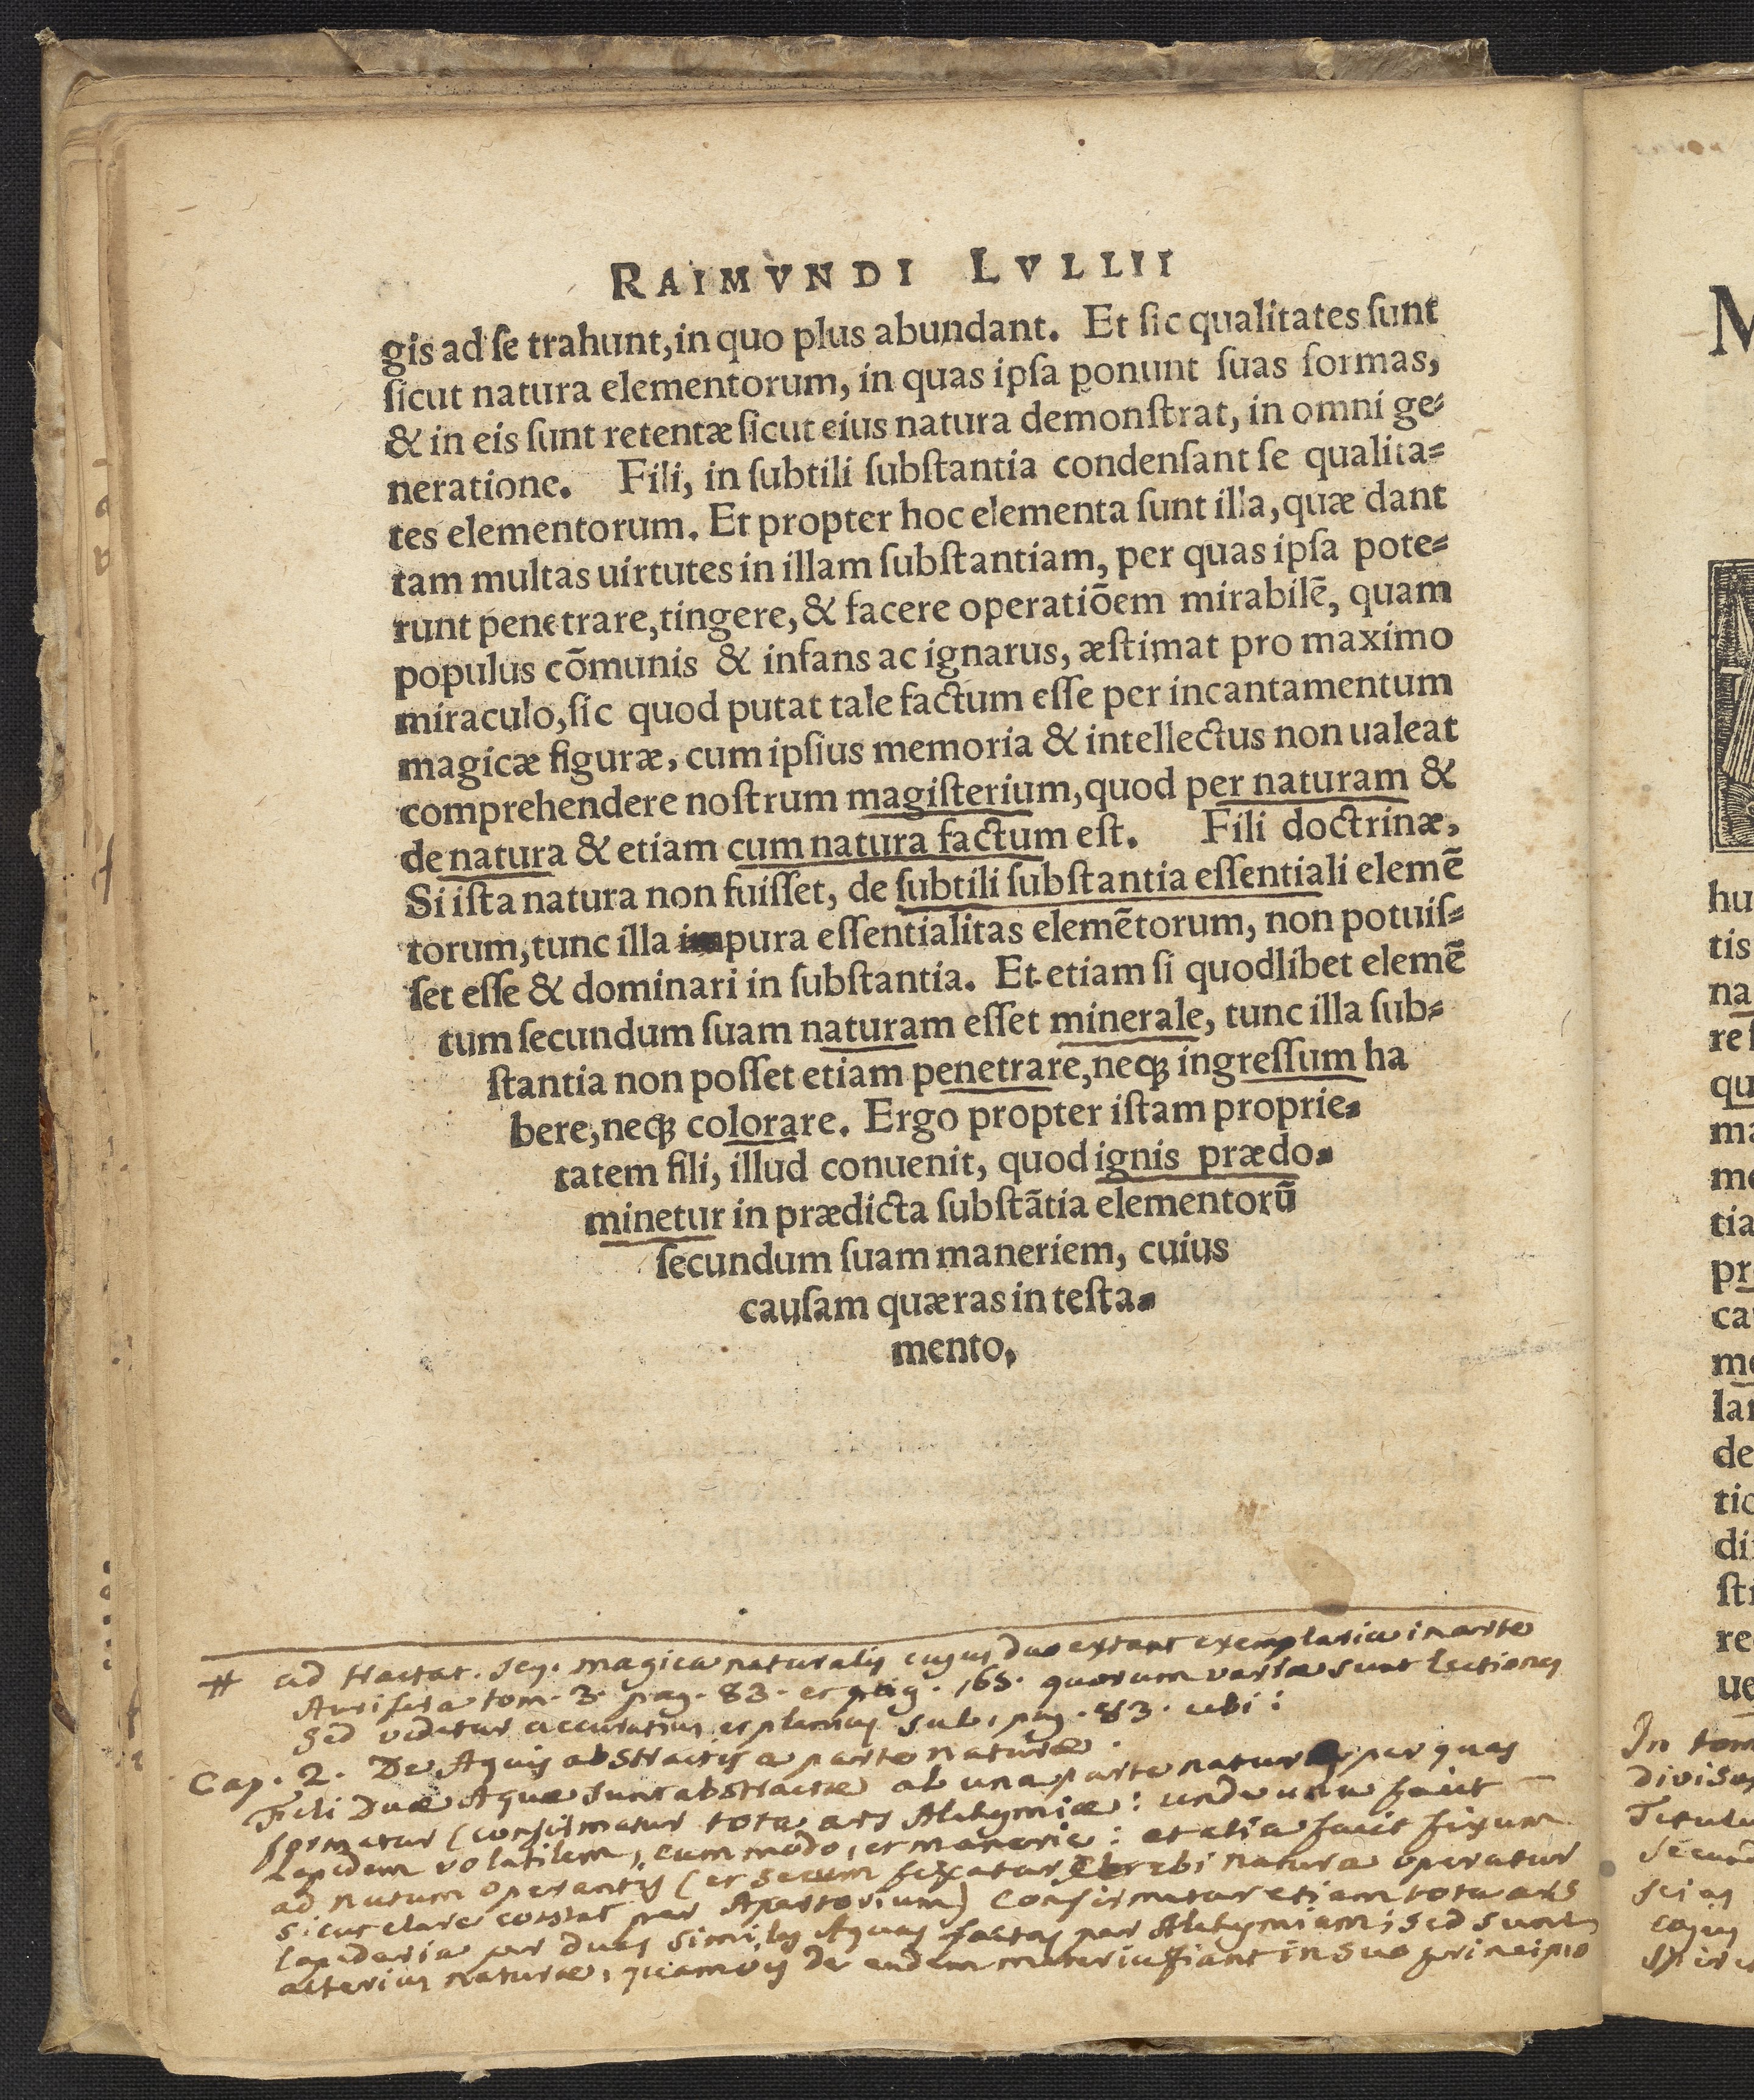 RAIMVNDI LVLLII
gis ad ſe trahunt, in quo plus abundant. Et ſic qualitates ſunt
ſicut natura elementorum, in quas ipſa ponunt ſuas formas,
& in eis ſunt retentæ ſicut eius natura demonſtrat, in omni ge-
neratione. Fili, in ſubtili ſubſtantia condenſant ſe qualita-
tes elementorum. Et propter hoc elementa ſunt illa, quæ dant
tam multas uirtutes in illam ſubſtantiam, per quas ipſa pote-
runt penetrare, tingere, & facere operatiõem mirabilẽ, quam
populus cõmunis & infans ac ignarus, æſtimat pro maximo
miraculo, ſic quod putat tale factum eſſe per incantamentum
magicæ figuræ, cum ipſius memoria & intellectus non ualeat
comprehendere noſtrum magiſterium, quod per naturam &
de natura & etiam cum natura factum eſt. Fili doctrinæ,
Si iſta natura non fuiſſet, de ſubtili ſubſtantia eſſentiali elemẽ
torum, tunc illa impura eſſentialitas elemẽtorum, non potuiſ-
ſet eſſe & dominari in ſubſtantia. Et etiam ſi quodlibet elemẽ
tum ſecundum ſuam naturam eſſet minerale, tunc illa ſub-
ſtantia non poſſet etiam penetrare, neqꝫ ingreſſum ha
bere, neqꝫ colorare. Ergo propter iſtam proprie-
tatem fili, illud conuenit, quod ignis prædo-
minetur in prædicta ſubſtãtia elementorũ
ſecundum ſuam maneriem, cuius
cauſam quæras in teſta-
mento.
# ad tractat. seq. magica naturalis cujus duo extant exemplaria in arte
Aurifera tom. 3. pag. 83. et pag. 165. quorum variæ sunt lectiones
Sed videtur accuratius et plenius sub. pag. 83. ubi:
Cap. 2. De Aquis abstractis a parte naturæ.
Fili Duæ Aquæ sunt abstractæ ab una parte naturæ per quas
formatur (confirmatur tota ars Alchymiæ: unde una facit
Lapidem volatilem, cum modo, et manerie: et alia facit fixum
ad nutum operantis (et secum fixatur ubi natura operatur
sicut clare constat per Apertorium) Confirmatur etiam tota ars
lapidaria per duas similes Aquas factas per Alchymiam; sed sunt
alterius naturæ, quamvis de eadem materia fiant in suo principio
M
hu
tis
na
re
qu
ma
me
tia
pr
cau
me
lar
de
tio
di
ſtr
re
ue
In tom